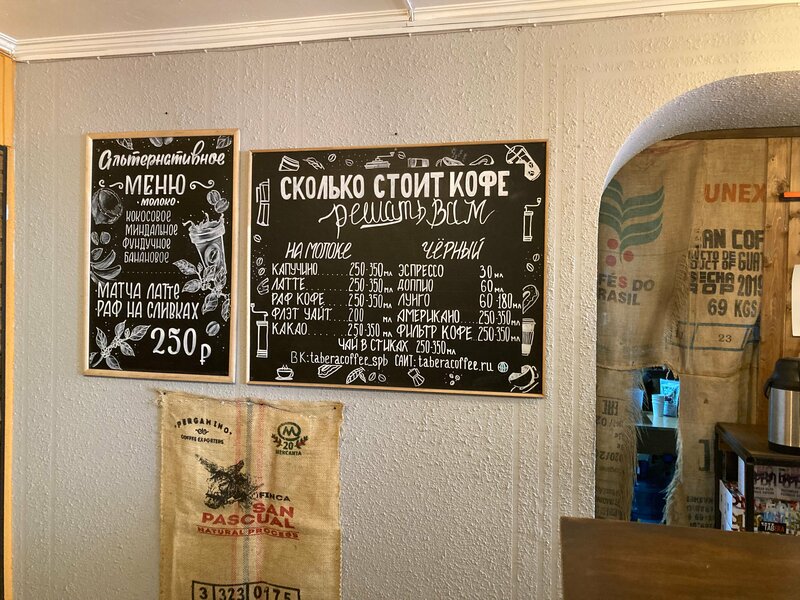 Альтернативное
МЕНЮ
МОЛОКО
КОКОСОВОЕ
МИНДАЛЬНОЕ
ФУНДУЧНОЕ
БАНАНОВОЕ
МАТЧА ЛАТТЕ
РАФ НА СЛИВКАХ
250 ₽
СКОЛЬКО СТОИТ КОФЕ
решать вам
НА МОЛОКЕ
КАПУЧИНО........250-350 МЛ
ЛАТТЕ..........250-350 МЛ
РАФ КОФЕ......250-350 МЛ
ФЛЭТ УАЙТ....200 МЛ
КАКАО.........250-350 МЛ
ЧЁРНЫЙ
ЭСПРЕССО 30 МЛ
ДОППИО 60 МЛ
ЛУНГО 60-180 МЛ
АМЕРИКАНО....250-350 МЛ
ФИЛЬТР КОФЕ..250-350 МЛ
ЧАЙ В СТИКАХ 250-350 МЛ
ВК:taberacoffee_spb САЙТ:taberacoffee.ru
PERGAMINO
COFFEE EXPORTERS
M
20
MERCANTA
FINCA
SAN
PASCUAL
NATURAL PROCESS
3 323 0175
UNEX
FÉS DO
RASIL
AN COF
UCTO DE GUA
UCT OF GUA
SECHA 2019
ROP
69 KGS
23